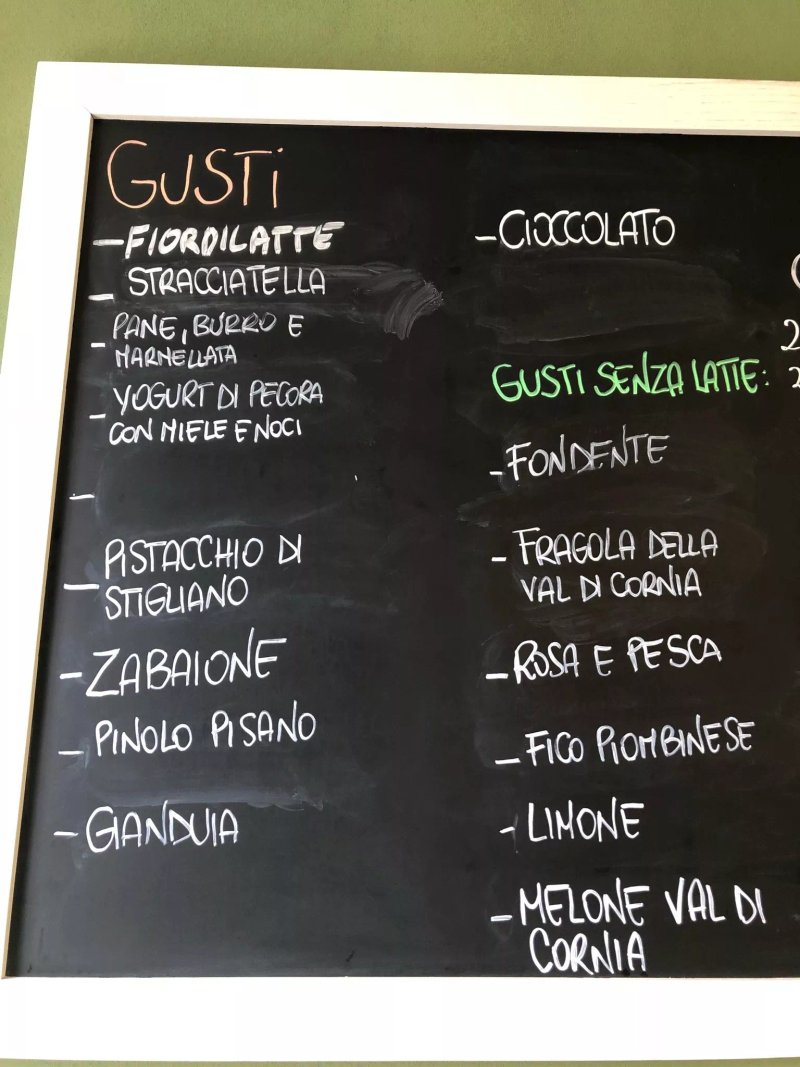 GUSTi
- FIORDILATTE
- STRACCIATELLA
- PANE, BURRO E
MARMELLATA
- YOGURT DI PECORA
CON MIELE E NOCI
-
- PISTACCHIO DI
STIGLIANO
- ZABAIONE
- PINOLO PISANO
- GIANDUIA
- CIOCCOLATO
GUSTI SENZA LATTE:
- FONDENTE
- FRAGOLA DELLA
VAL DI CORNIA
- ROSA E PESCA
- FICO PIOMBINESE
- LIMONE
- MELONE VAL DI
CORNIA